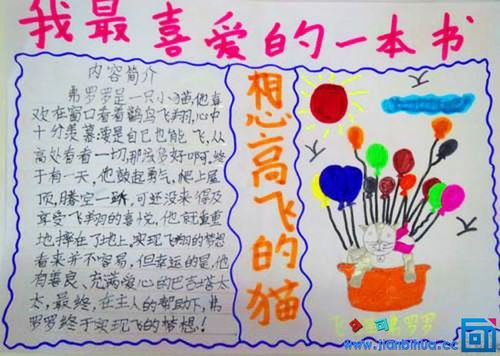 我最喜爱的一本书
内容简介
弗罗罗是一只小猫,他喜
欢在窗口看着鹳鸟飞翔,心中
十分羡慕要是自已也能飞,从
高处看看一切,那应多好啊,终
于有一天,他鼓起勇气,爬上屋
顶,腾空一跳,可还没来得及
享受飞翔的喜悦,他就重重
地摔在了地上,实现飞翔的梦想
看来并不容易,但幸运的是,他
有善良、充满爱心的巴吉塔太
太,最终,在主人的帮助下,弗
罗罗终于实现飞的梦想!
想高飞的猫
弗罗罗
www.jianbihua.cc